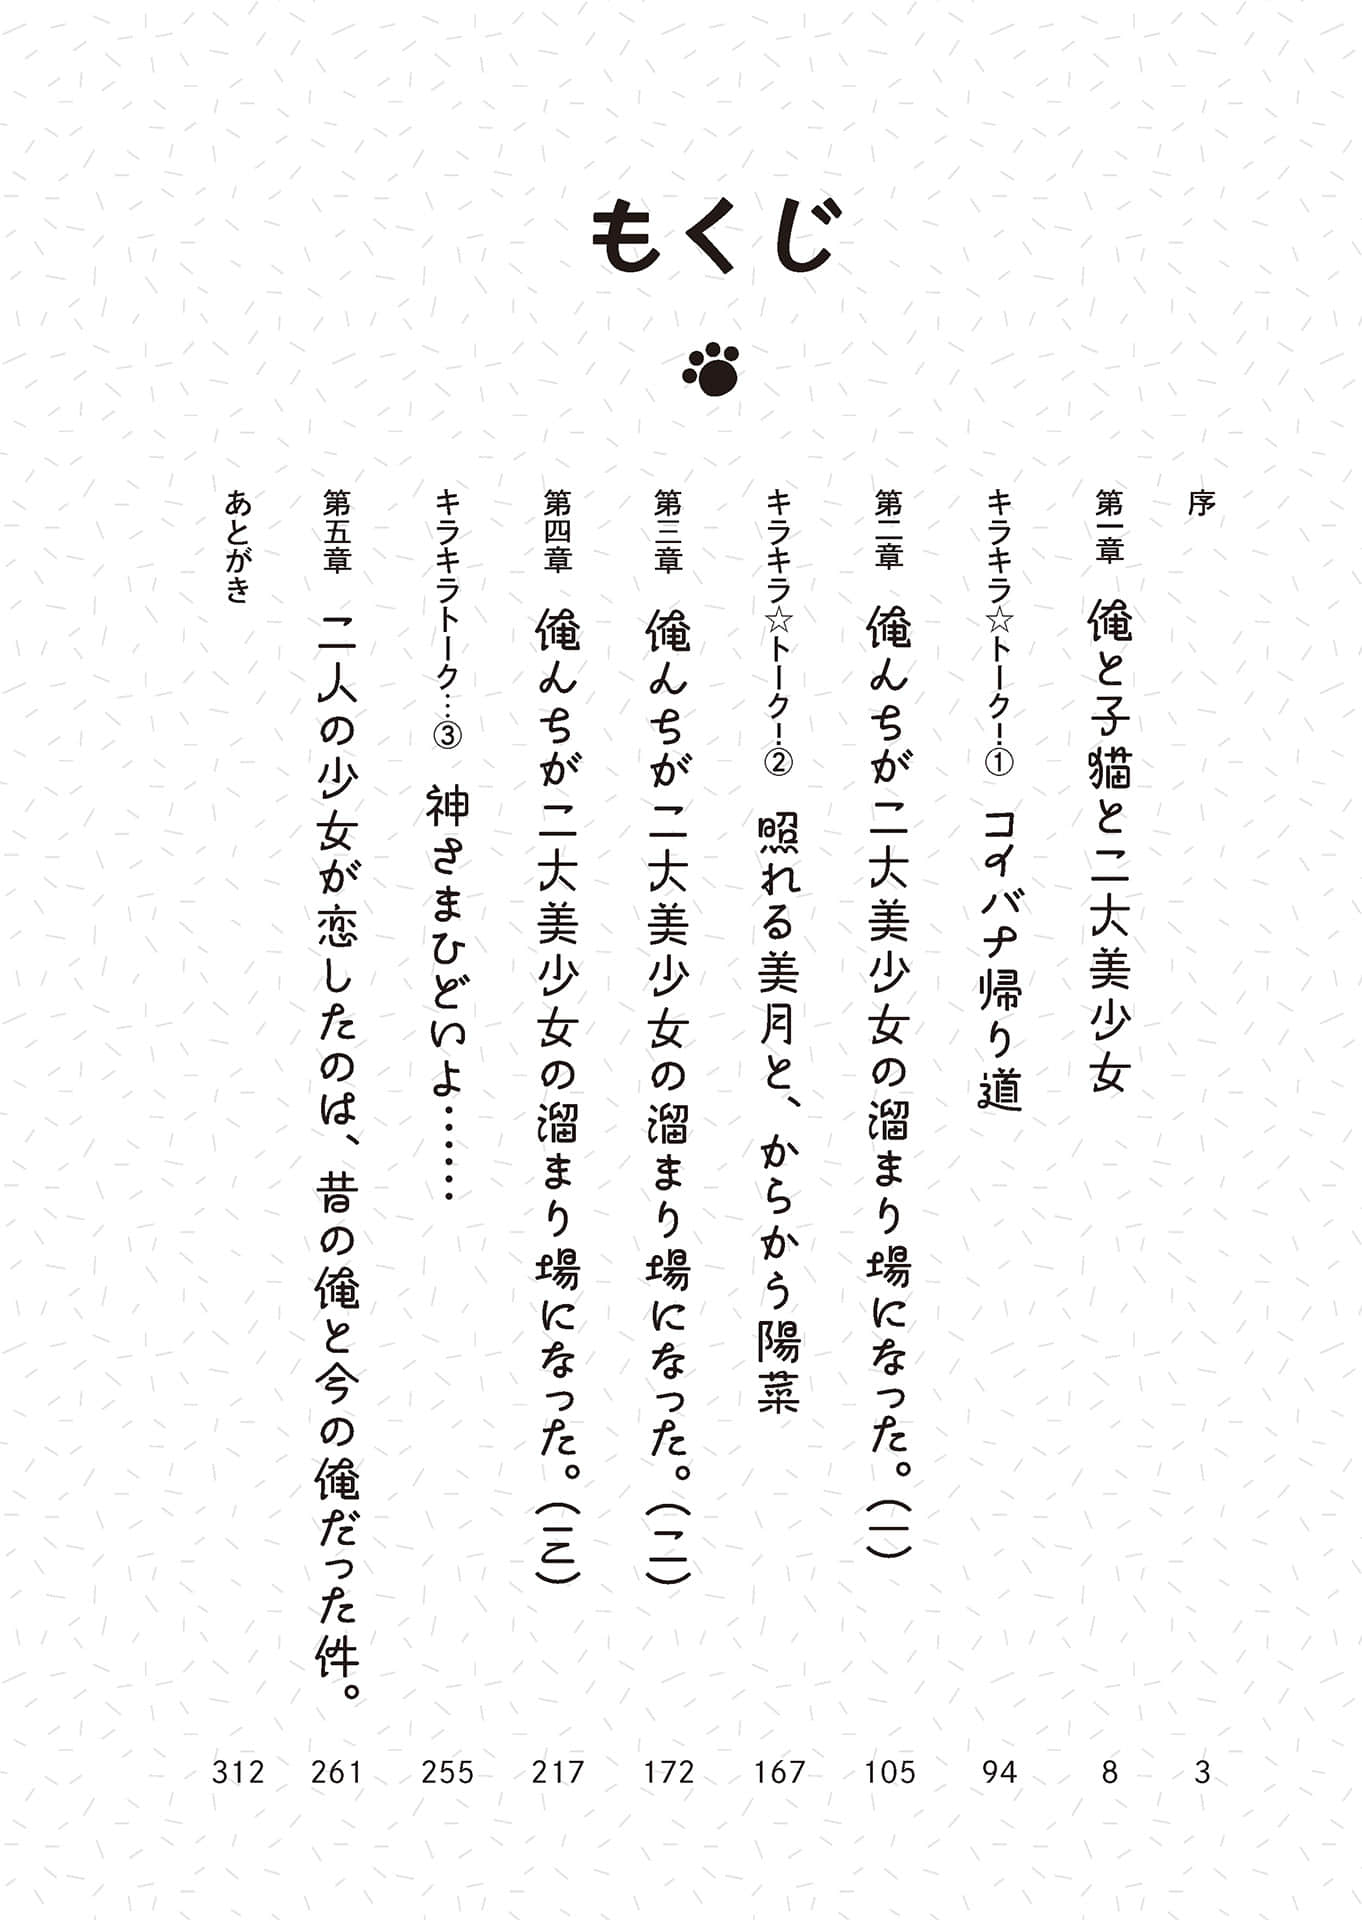 もくじ
序 3
第一章 俺と子猫と二大美少女 8
キラキラ☆トーク!① コイバナ帰り道 94
第二章 俺んちが二大美少女の溜まり場になった。(一) 105
キラキラ☆トーク!② 照れる美月と、からかう陽菜 167
第三章 俺んちが二大美少女の溜まり場になった。(二) 172
第四章 俺んちが二大美少女の溜まり場になった。(三) 217
キラキラトーク…③ 神さまひどいよ…… 255
第五章 二人の少女が恋したのは、昔の俺と今の俺だった件。 261
あとがき 312